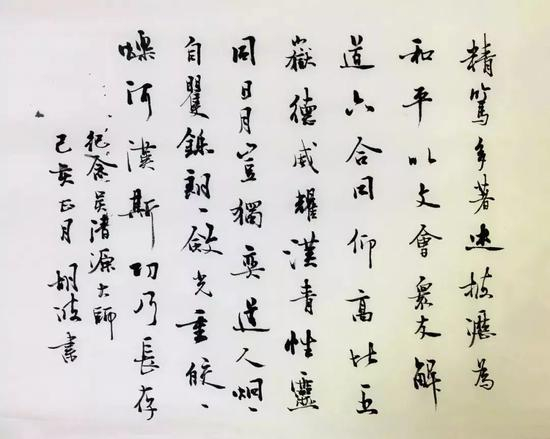 精篤多著述披瀝爲
和平以文會衆友解
道六合同仰高比五
嶽德威耀漢青性靈
同日月豈獨奕道人炯丶
自矍鑠光重皎丶
爍河漢斯功乃長存
紀念吳清源大師
己亥正月胡波書